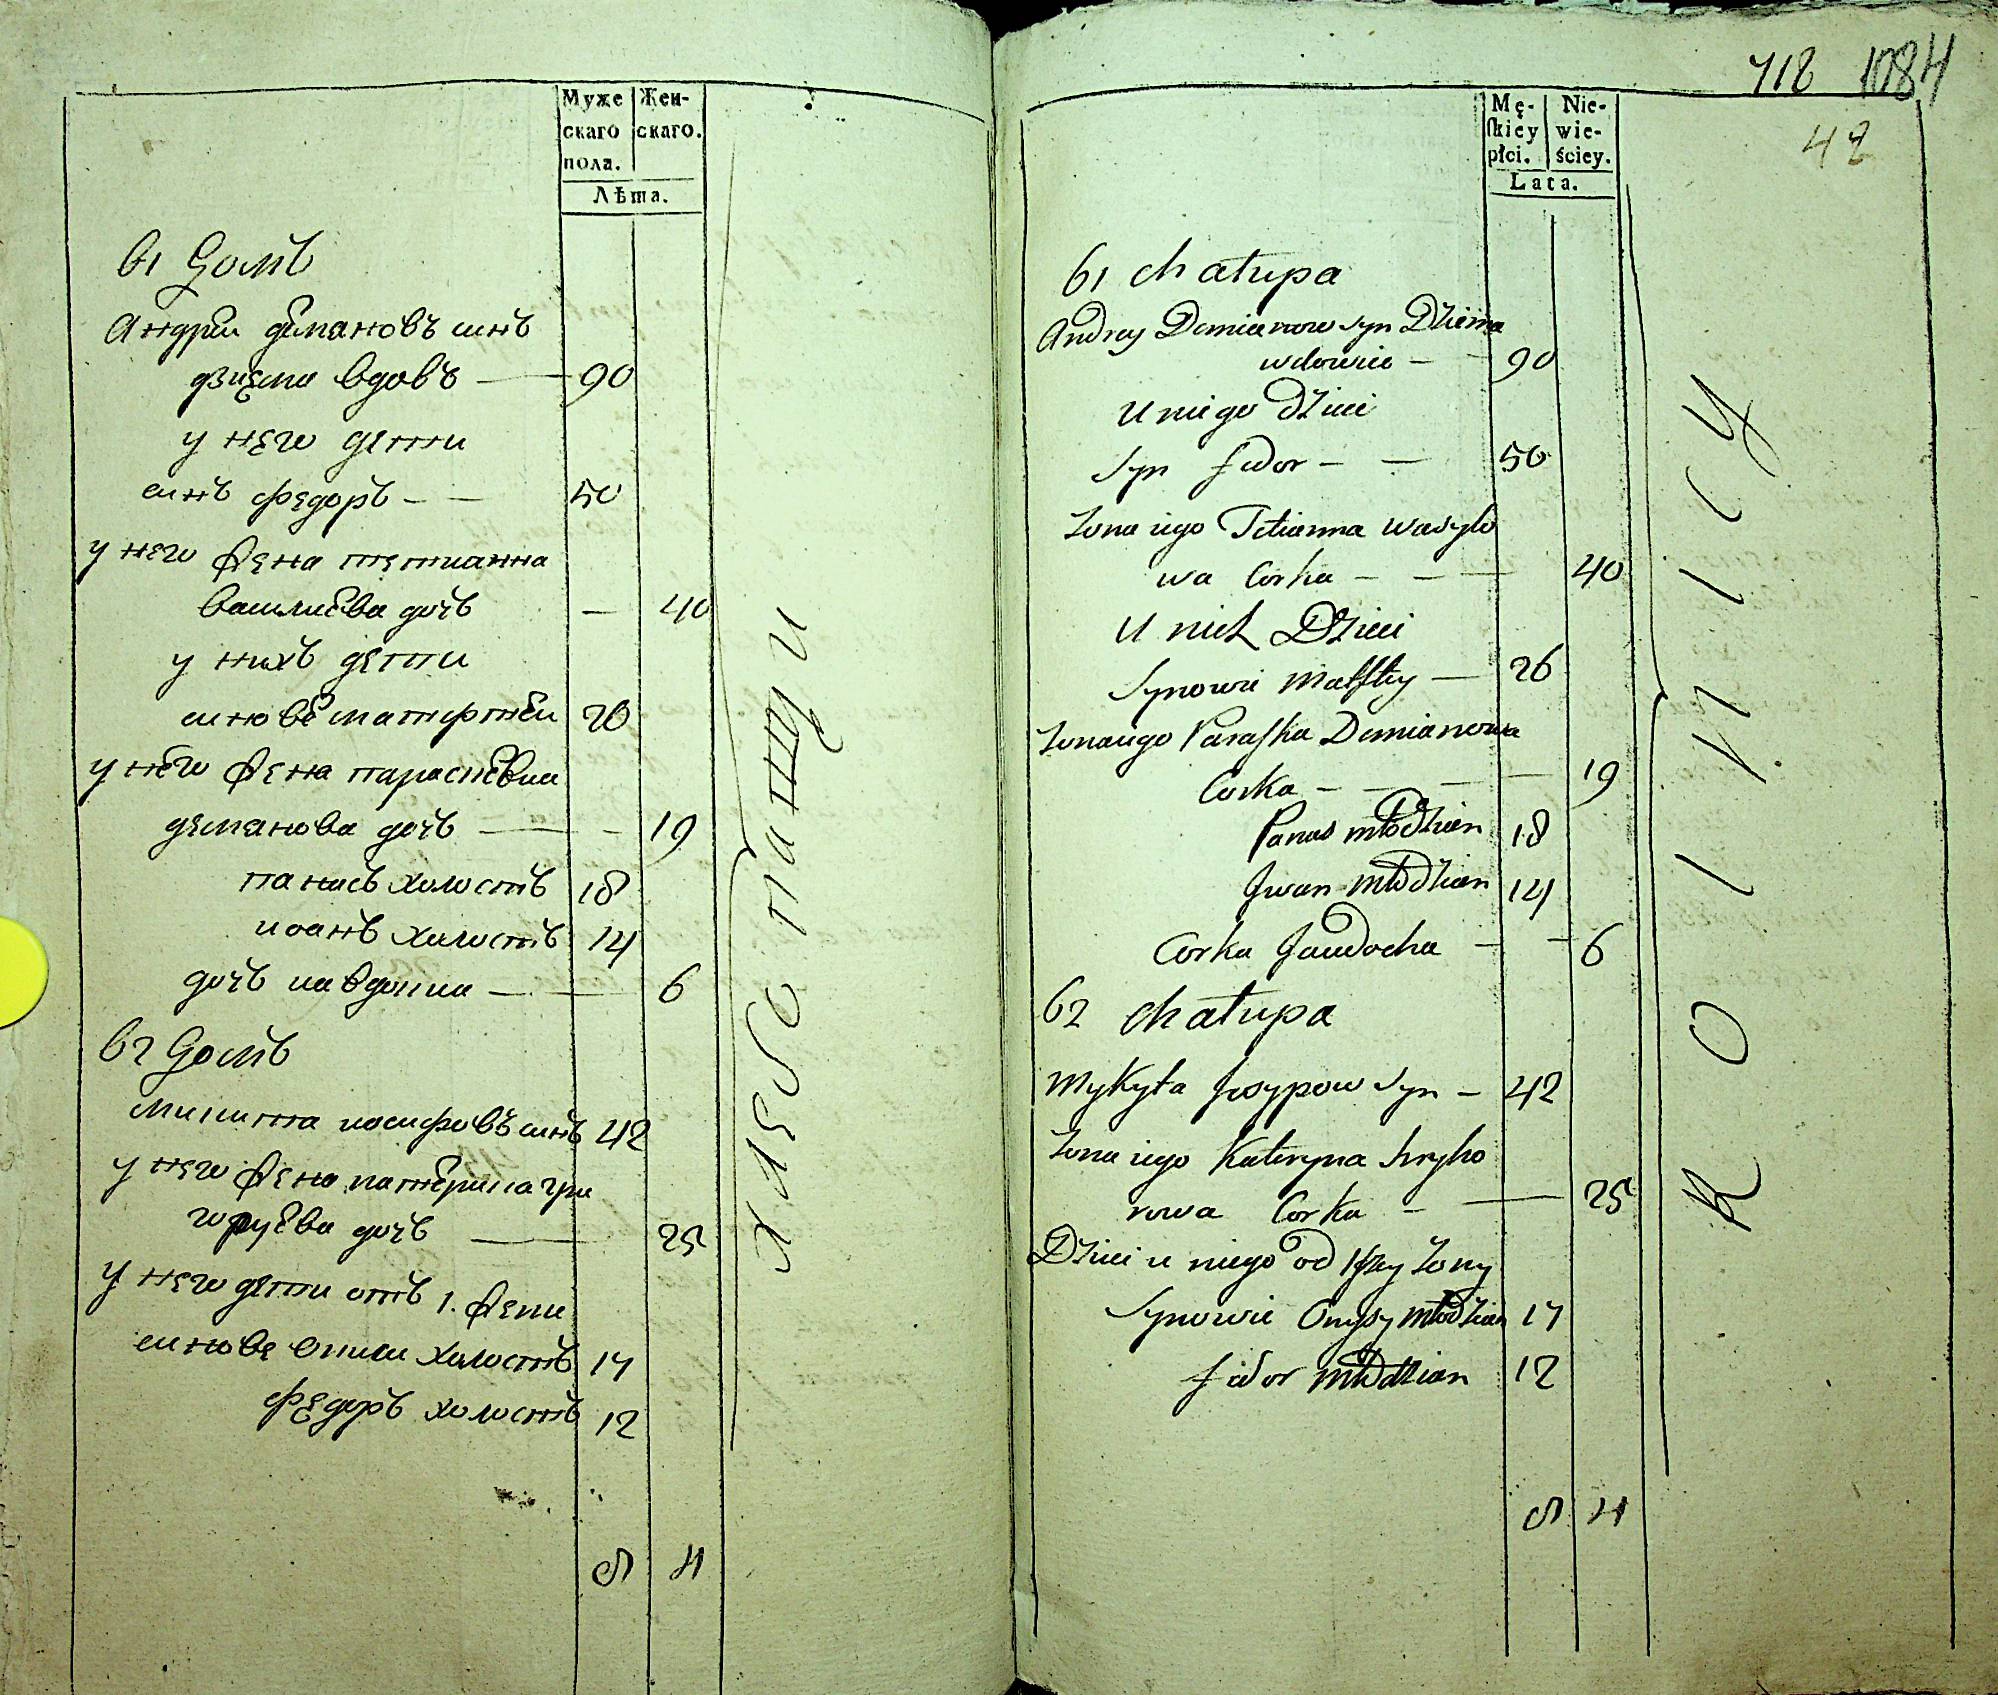 Муже Жен-
скаго скаго.
пола.
Лѣта.
61 Домъ
Андрей демановъ синъ
дзиема вдовъ — 90
у него дети
синъ Федоръ — — 50
у него жена тетианна
василиева дочъ — 40
у нихъ дети
синове матфтей 26
у него жена параскевия
деманова дочъ — — 19
панасъ холостъ 18
иоанъ холостъ 14
дочъ иавдокиа — — 6
62 Домъ
микита иосифовъ синъ 42
у него жена катерина гри
горуева дочъ — 25
у него дети отъ 1. жени
синове
холостъ 17
Федоръ холостъ 12
8 4
хлебопашци
718 1084
42
Mę- Nie-
skiey wie-
płci. ściey.
Lata.
61 chałupa
Andrey Demianow syn Dziema
wdowiec — — 90
U niego dzieci
Syn fedor — — 50
Zona iego Tetianna Wasylo
wa Corka — — — 40
U nich Dzieci
Synowie Matftey — 26
Zona iego Paraska Demianowa
Corka — — — 19
Panas młodzian 18
Jwan młodzian 14
Corka Jawdocha — — 6
62 chałupa
Mykyta Josypow Syn — 42
Zona iego Kateryna hryho
rowa Corka — — 25
Dzieci u niego od 1szey Zony
Synowie
młodzian 17
fedor młodzian 12
8 4
ROLNICY